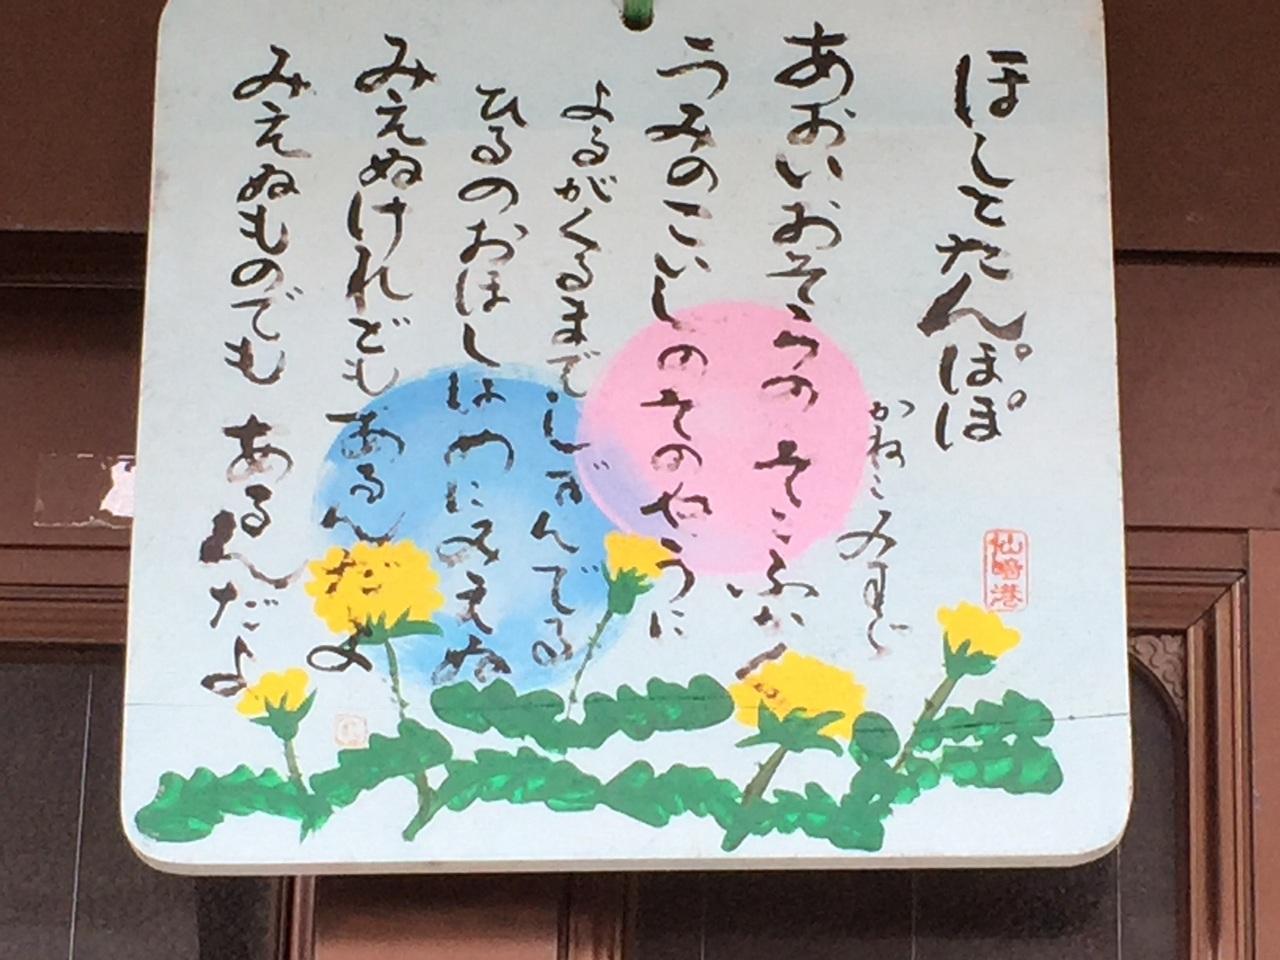 ほしとたんぽぽ
かねこみすゞ
あおいおそらのそこふかく
うみのこいしのそのやうに
よるがくるまでしずんでる
ひるのおほしはめにみえぬ
みえぬけれどもあるんだよ
みえぬものでも あるんだよ
仙崎港